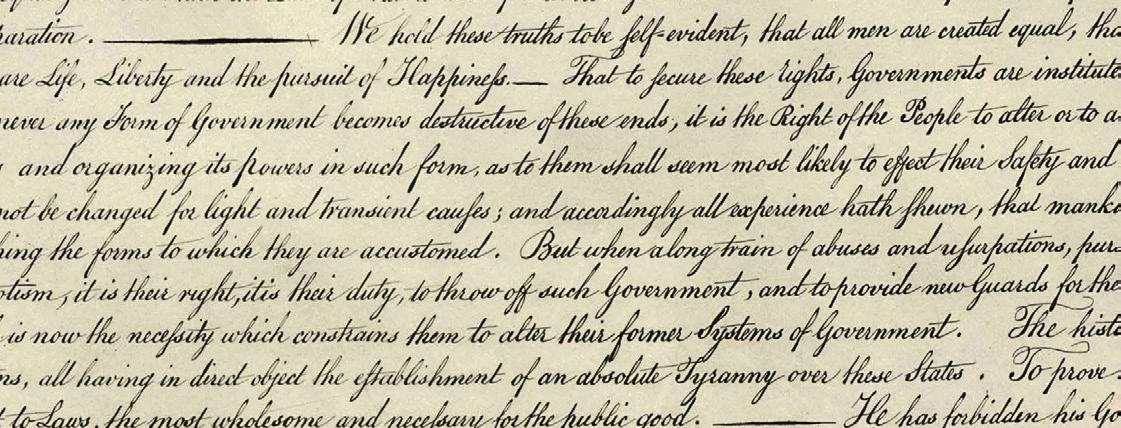 We hold these truths to be self-evident, that all men are created equal, tha
are Life, Liberty and the pursuit of Happiness.— That to secure these rights, Governments are institute
never any Form of Government becomes destructive of these ends, it is the Right of the People to alter or to a
and organizing its powers in such form, as to them shall seem most likely to effect their Safety and
not be changed for light and transient causes; and accordingly all experience hath shewn, that mank
hing the forms to which they are accustomed. But when a long train of abuses and usurpations, pur-
otism, it is their right, it is their duty, to throw off such Government, and to provide new Guards for the
is now the necessity which constrains them to alter their former Systems of Government. The histo
ns, all having in direct object the establishment of an absolute Tyranny over these States. To prove
t to Laws, the most wholesome and necessary for the public good. —— He has forbidden his Go